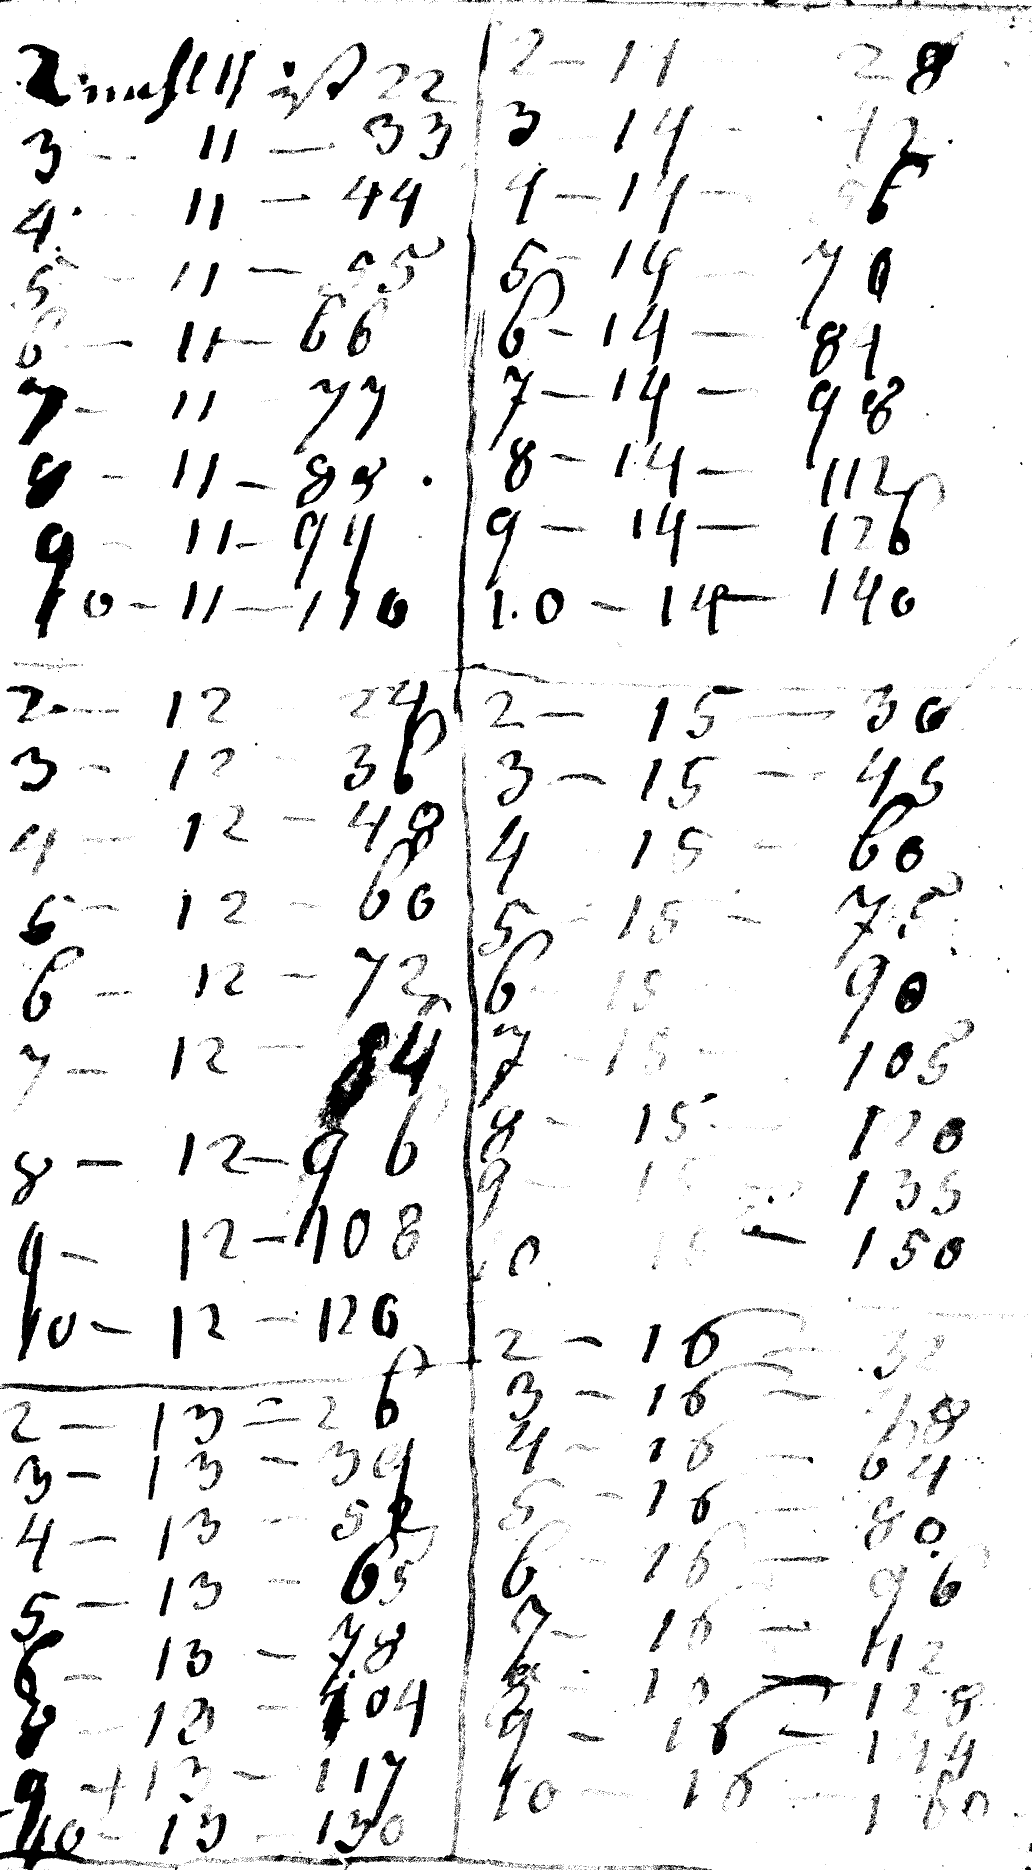 2 mahl 11 ist 22
3 – 11 – 33
4 11 – 44
5 – 11 – 55
6 – 11 – 66
7 – 11 77
8 – 11 – 88
9 – 11 – 99
10 – 11 – 110
2 – 12 24
3 – 12 – 36
4 – 12 – 48
5 – 12 – 60
6 – 12 – 72
7 – 12 – 84
8 – 12 – 96
9 – 12 – 108
10 – 12 – 120
2 – 13 – 26
3 – 13 – 39
4 – 13 – 52
5 – 13 – 65
6 – 13 – 78
8 – 13 – 104
9 – 13 – 117
10 – 13 – 130
2 – 14 28
3 – 14 – 42
4 – 14 – 56
5 – 14 – 70
6 – 14 – 84
7 – 14 – 98
8 – 14 – 112
9 – 14 – 126
10 – 14 – 140
2 – 15 – 30
3 – 15 – 45
4 15 – 60
5 – 15 – 75
6 – 15 – 90
7 – 15 – 105
8 – 15 – 120
9 – 15 – 135
10 15 – 150
2 – 16 – 32
3 – 16 – 48
4 – 16 – 64
5 – 16 – 80
6 – 16 – 96
7 – 16 – 112
8 – 16 – 128
9 – 16 – 144
10 – 16 – 160